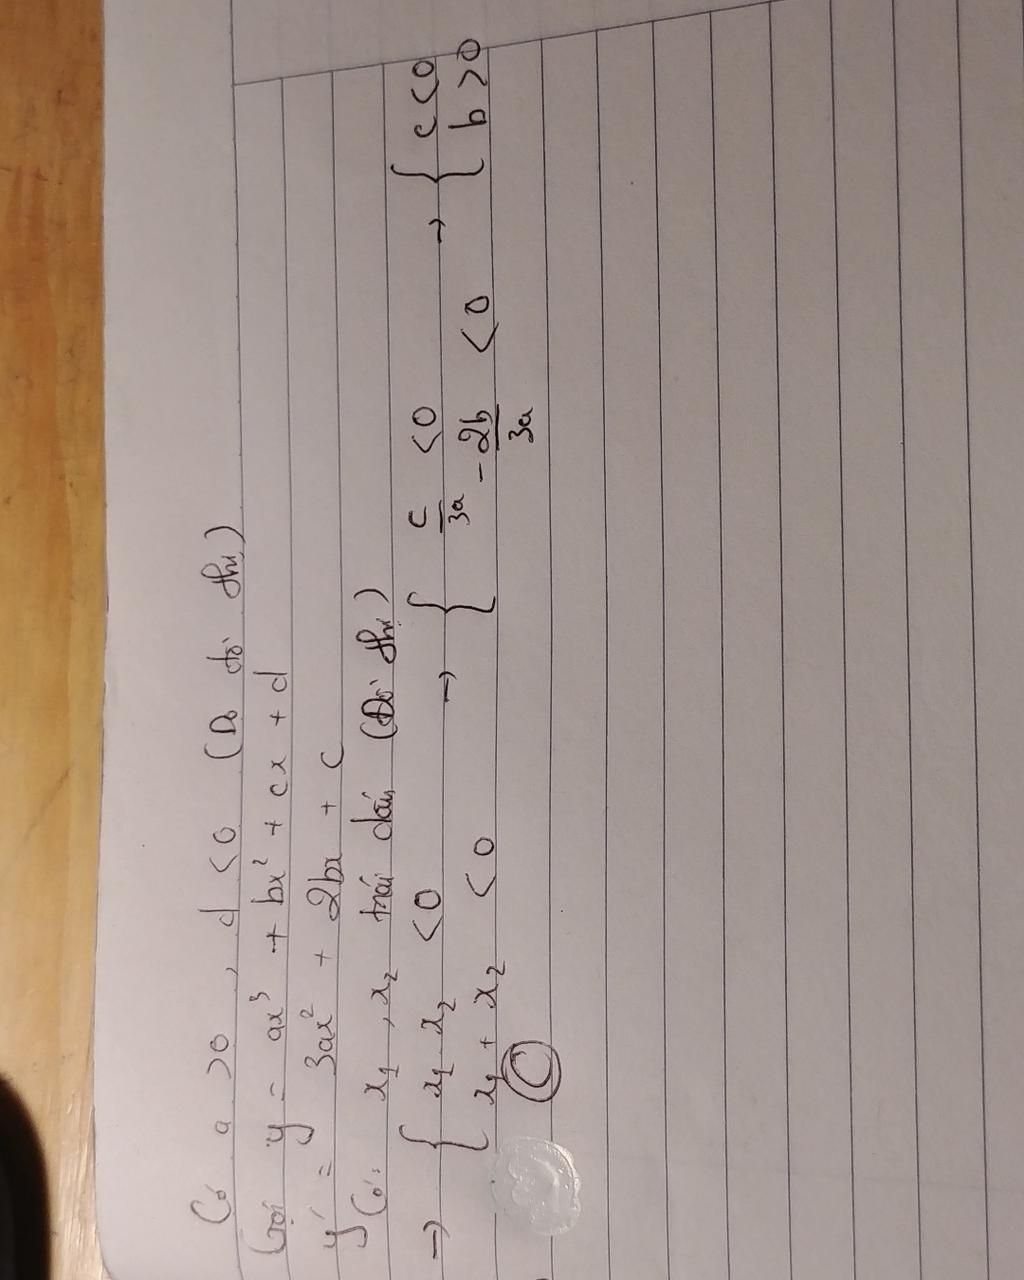 Có a > 0, d < 0 (Do đồ thị)
Gọi y = ax³ + bx² + cx + d
y' = 3ax² + 2bx + c
Có: x₁, x₂ trái dấu (Đồ thị)
→ { x₁.x₂ < 0 → { c/3a < 0 → { c < 0
x₁ + x₂ < 0 -2b/3a < 0 b > 0
C